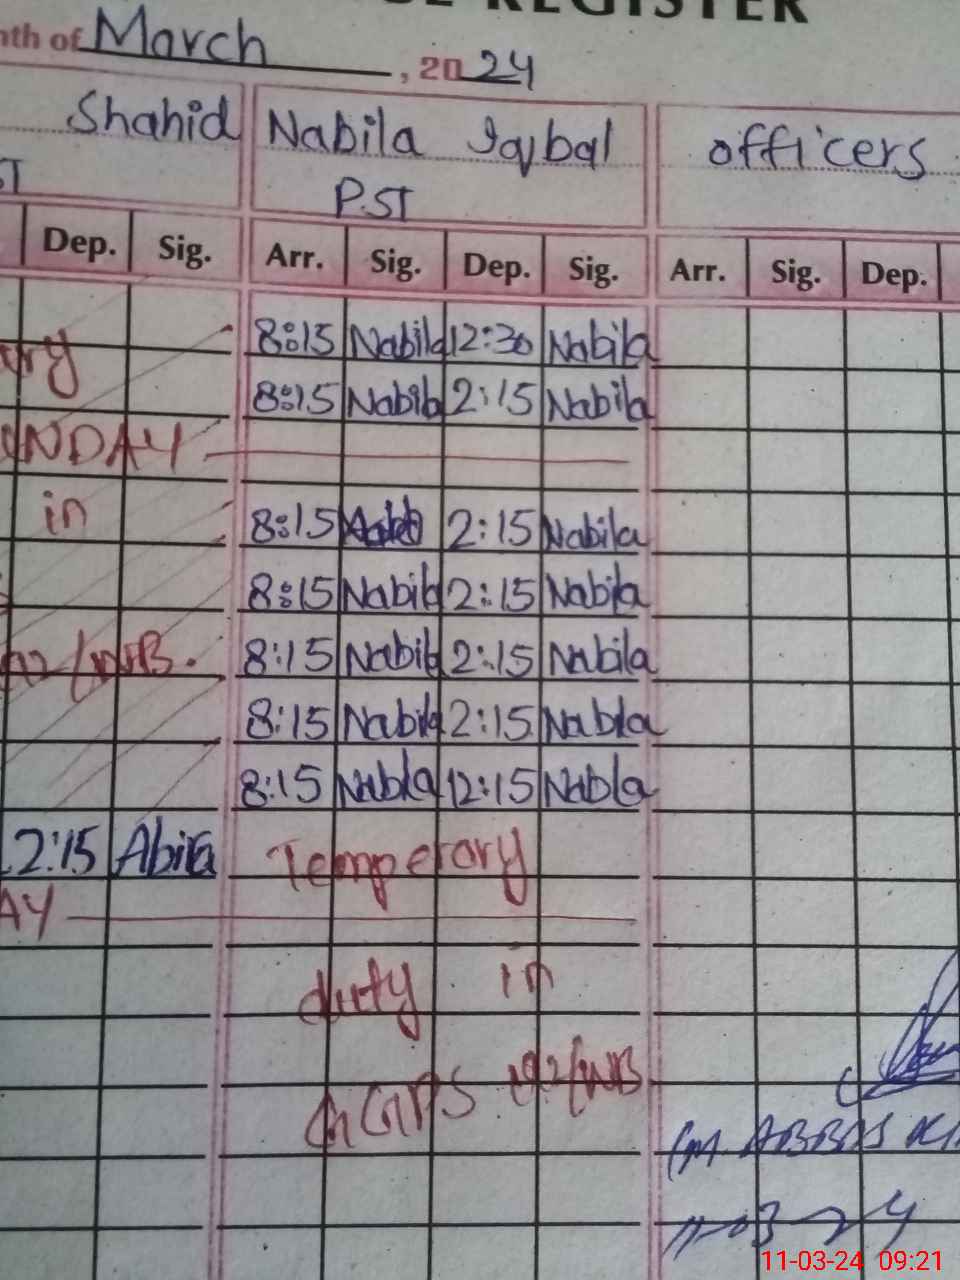 REGISTER
nth of March, 2024
Shahid Nabila Iqbal officers
P.ST
Dep. Sig. Arr. Sig. Dep. Sig. Arr. Sig. Dep.
8:15 Nabila 12:30 Nabila
8:15 Nabila 2:15 Nabila
UNDAY
in 8:15 2:15 Nabila
8:15 Nabila 2:15 Nabila
8:15 Nabila 2:15 Nabila
8:15 Nabila 2:15 Nabla
8:15 Nabla 12:15 Nabla
2:15 Abira Temperory
AY
duty in
(M. ABBAS
11-03-24
11-03-24 09:21